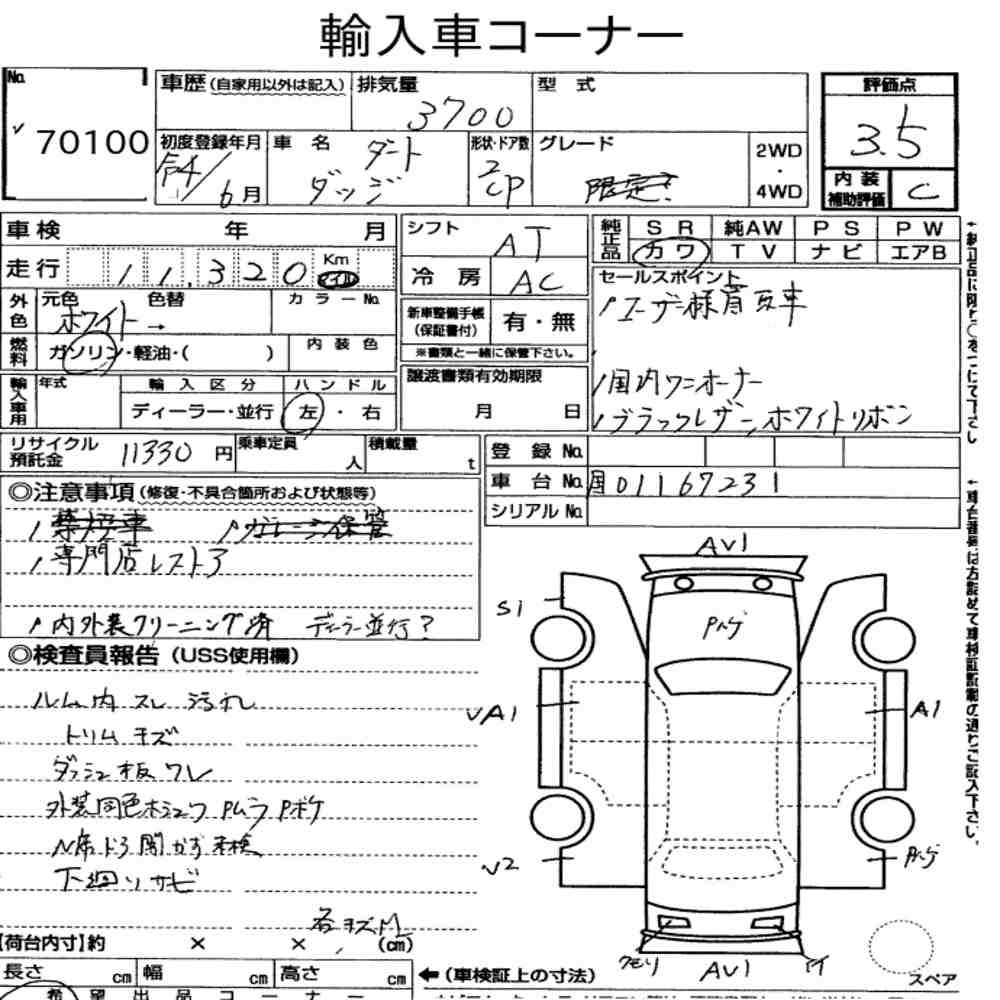 輸入車コーナー
No.
70100
車歴(自家用以外は記入)
排気量
3700
型 式
評価点
3.5
初度登録年月
令4/6月
車 名
ダート
ダッジ
形状・ドア数
2
CP
グレード
限定?
2WD
・
4WD
内装
補助評価
C
車検 年 月
走行 11,320 Km マイル
シフト
AT
冷房
AC
純正品
SR 純AW PS PW
カワ TV ナビ エアB
外色
元色 色替 カラーNo.
ホワイト →
燃料
ガソリン・軽油・( )
内装色
新車整備手帳
(保証書付)
有・無
※書類と一緒に保管下さい。
セールスポイント
ユーザー様買取車
国内ワンオーナー
ブラックレザー、ホワイトリボン
輸入車用
年式 輸入区分 ハンドル
ディーラー・並行 左・右
譲渡書類有効期限
月 日
リサイクル
預託金
11330 円
乗車定員
人
積載量
t
登録No.
車台No. 国01167231
シリアルNo.
◎注意事項(修復・不具合箇所および状態等)
禁煙車 ガレージ保管
専門店レストア
内外装クリーニング済 ディーラー並行?
◎検査員報告(USS使用欄)
ルーム内 スレ 汚れ
トリム キズ
ダッシュ板 ワレ
外装同色ホシュウ Pムラ Pボケ
N席ドア開かず未検
下廻りサビ
各キズ凹
AV1
S1
Pハゲ
VA1
A1
V2
Pハゲ
クモリ
AV1
スペア
【荷台内寸】約 × × (cm)
長さ cm 幅 cm 高さ cm
←(車検証上の寸法)
希望出品コーナー
←純正品に限り○をつけて下さい
←車台番号は左詰めで車検証記載の通りご記入下さい。